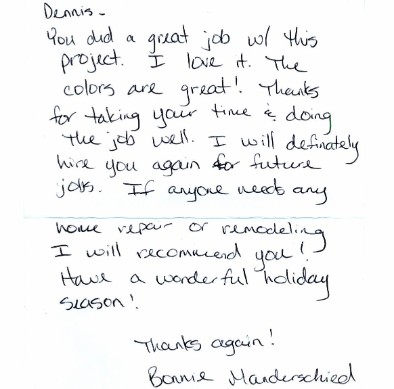 Dennis -
You did a great job w/ this
project. I love it. The
colors are great! Thanks
for taking your time & doing
the job well. I will definately
hire you again for future
jobs. If anyone needs any
home repair or remodeling
I will recommend you!
Have a wonderful holiday
season!
Thanks again!
Bonnie Manderschied